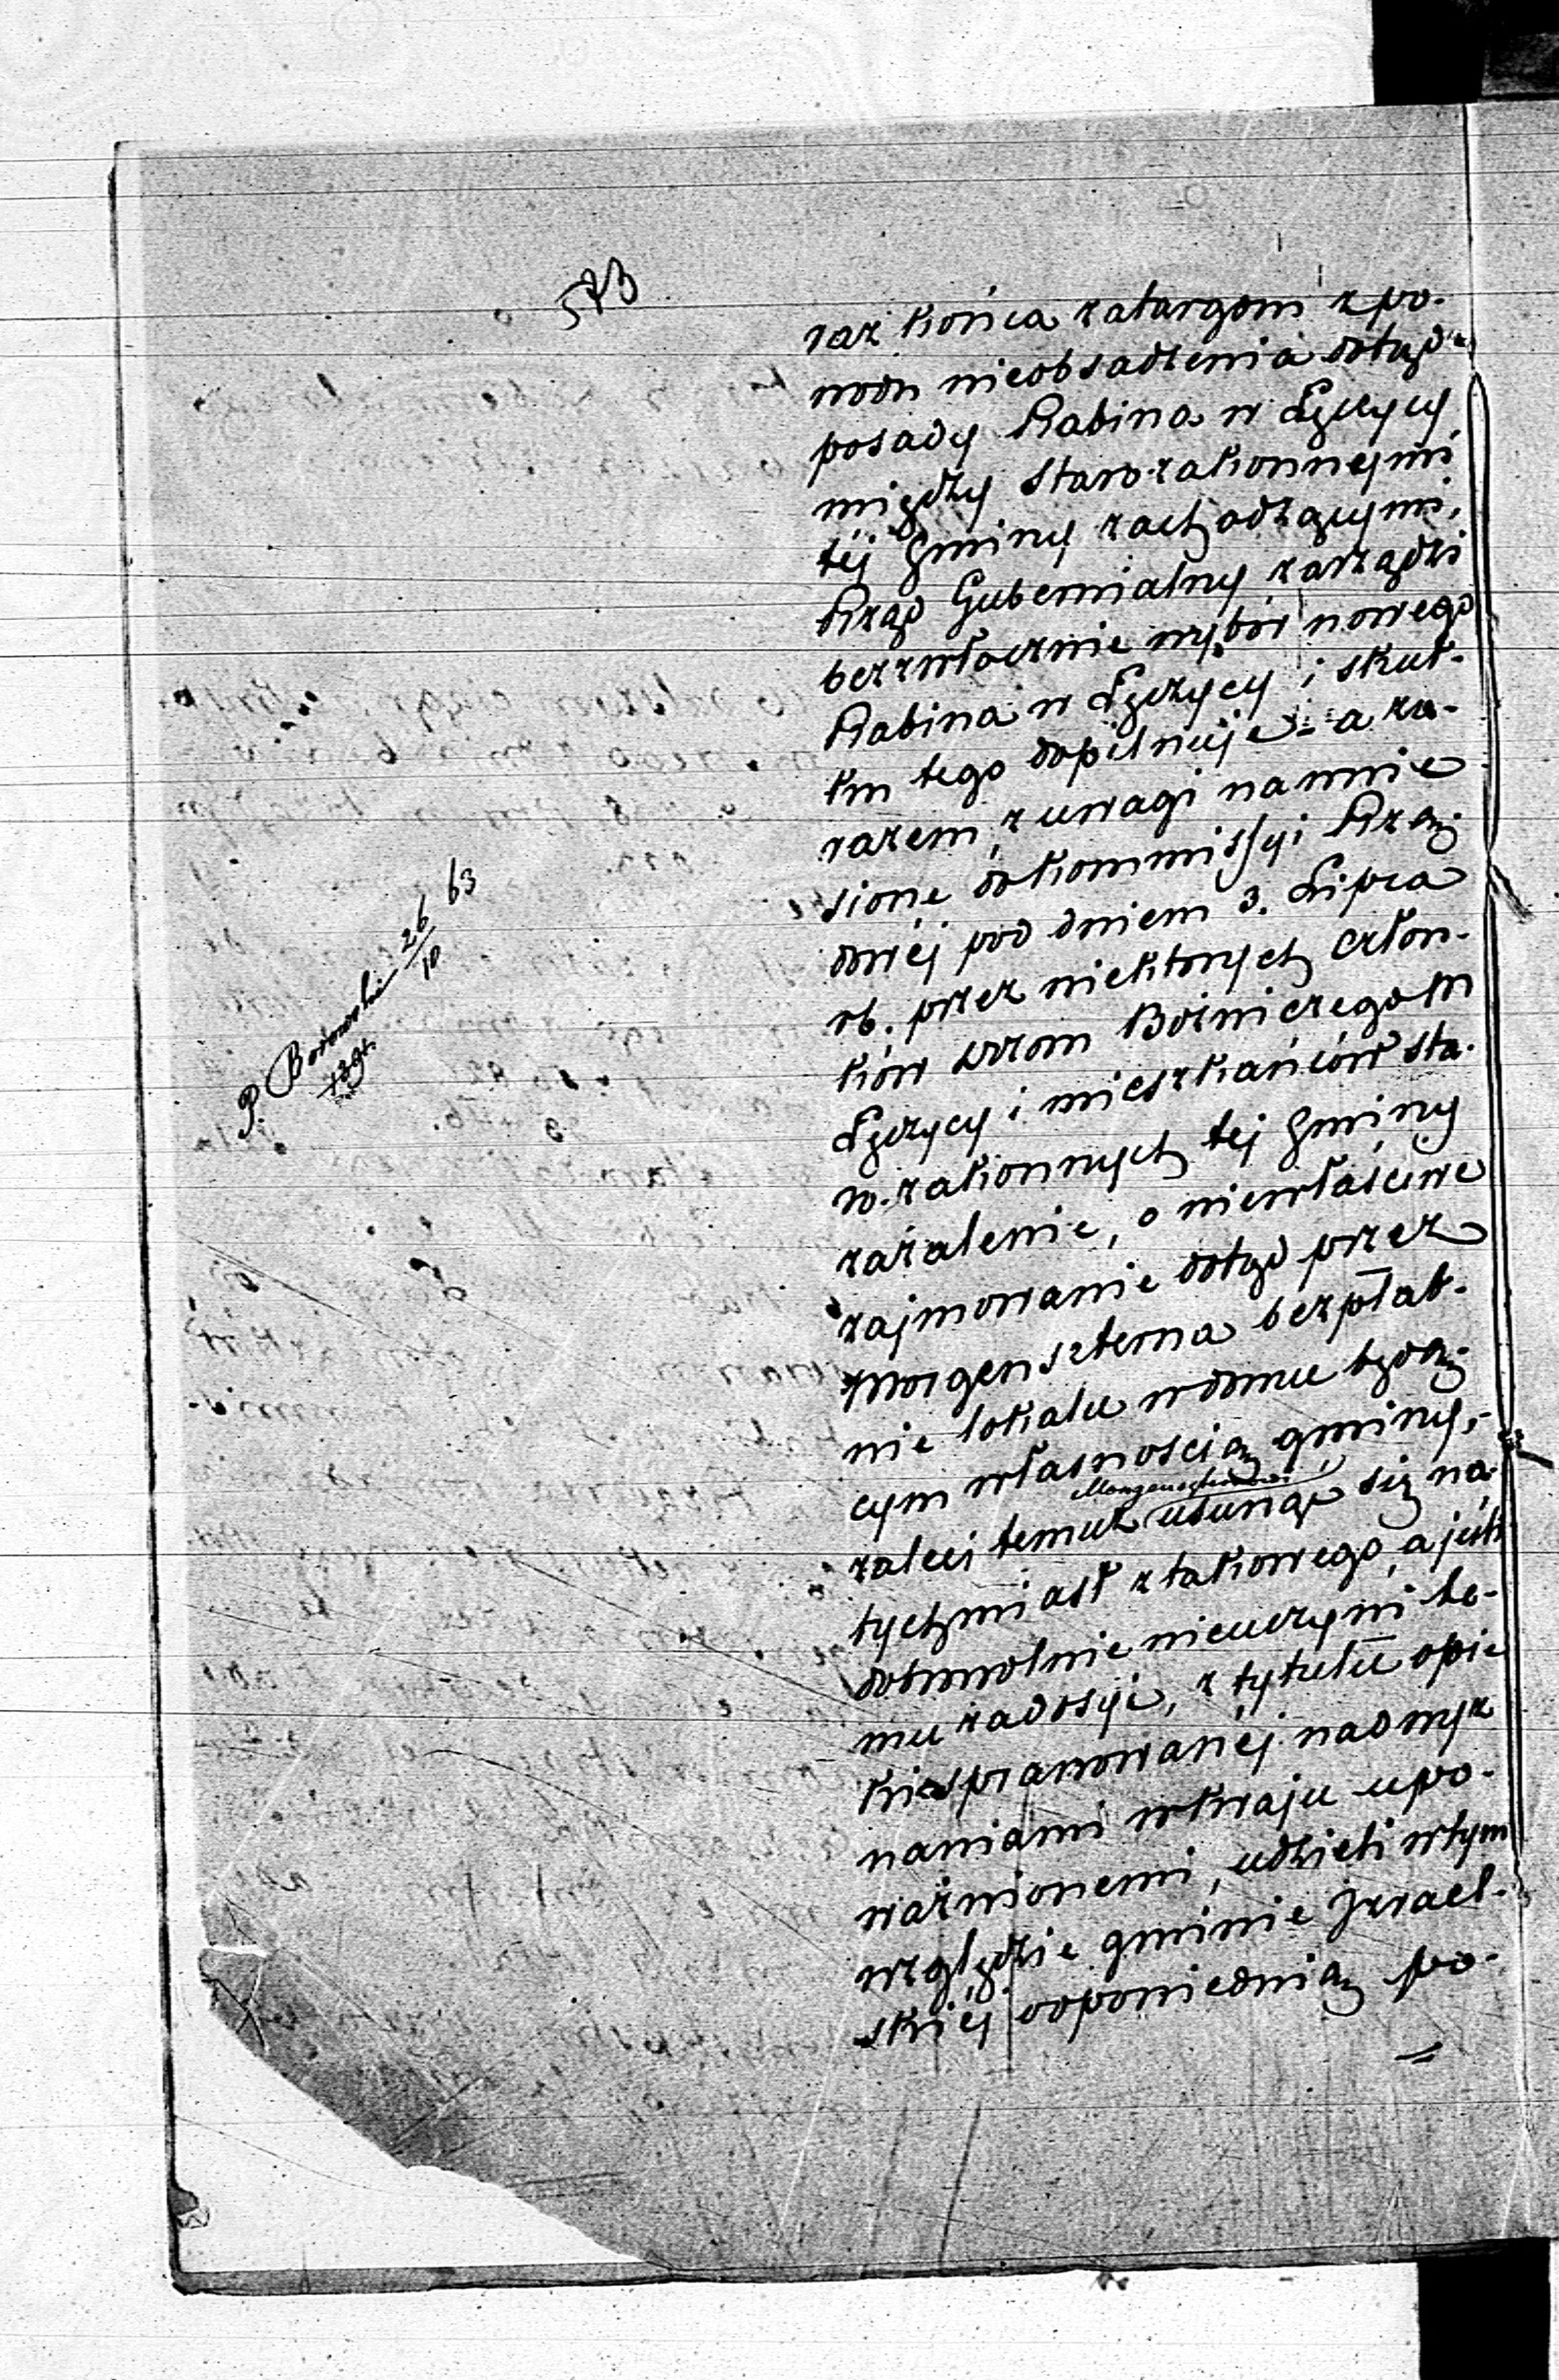 573
raz końca zatargom z po-
wodu nieobsadzenia dotąd
posady Rabina w Łęczycy
między Staro-zakonnymi
téj Gminy zachodzącymi,
Rząd Gubernialny zarządzi
bezzwłocznie wybór nowego
Rabina w Łęczycy i skut-
ku tego dopilnuje – a za-
razem, z uwagi na wnie
sione do Kommissyi Rzą-
dowéj pod dniem 3. Lipca
rb. przez niektorych człon-
ków Dozoru Bożniczego M
Łęczycy i mieszkańców sta-
ro-zakonnych téj Gminy
zażalenie, o niewłaściwe
zajmowanie dotąd przez
Morgenszterna bezpłat-
nie lokalu w domu będą-
cym własnością gminy,-
zaleci temuż Morgenszternowi usunąć się na-
tychmiast z takowego, a jeśli
dobrowolnie nieuczyni te-
mu zadosyć, z tytułu opie
ki sprawowanéj nad wyz
naniami w kraju upo-
ważnionemi, udzieli w tym
względzie gminie Izrael-
skiéj odpowiednią po-
P. Borowski 26/10 63